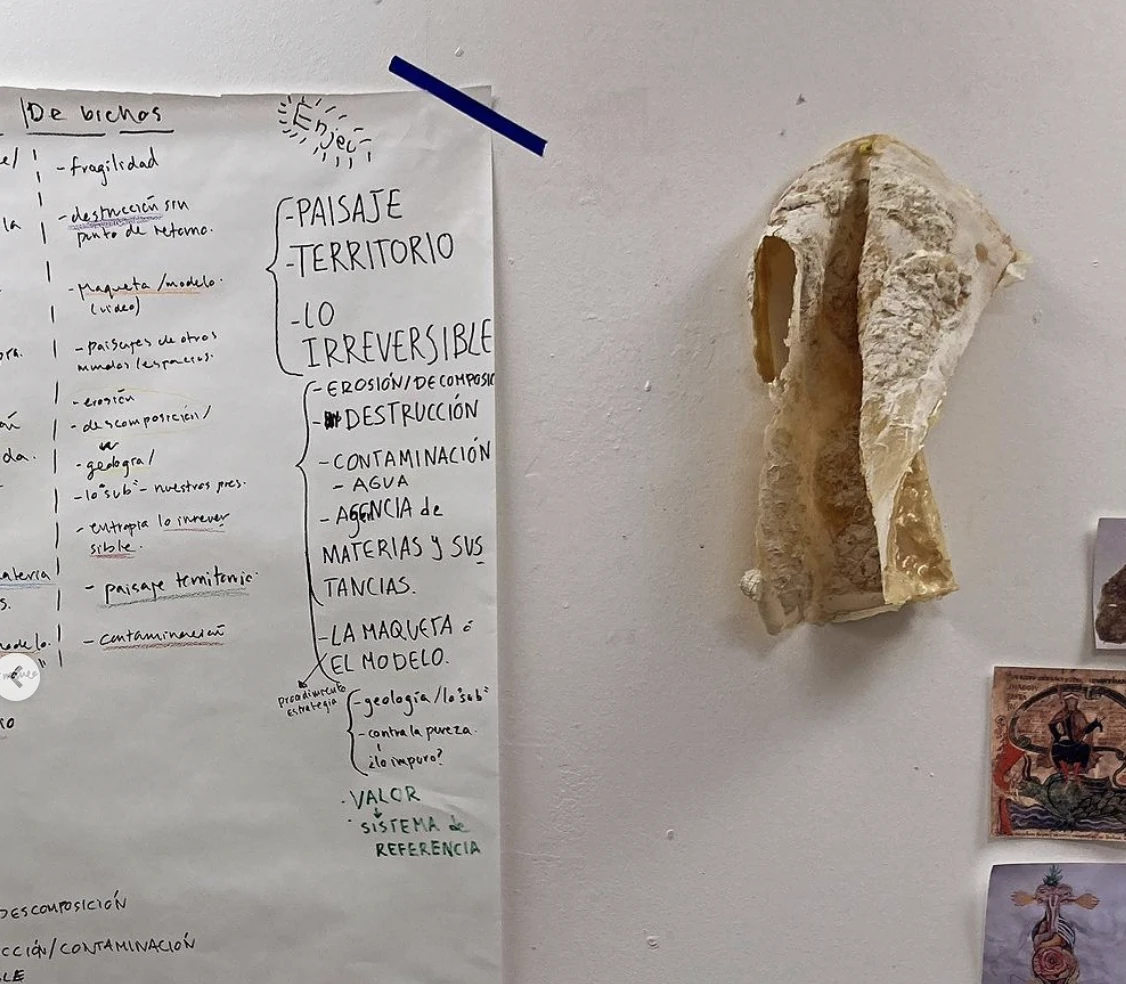 De bichos
- fragilidad
- destrucción sin
punto de retorno.
- maqueta/modelo.
(video)
- paisajes de otros
mundos/espacios.
- erosión
- descomposición/
- geología/
- lo "sub" - nuestros pres.
- entropia lo irrever
sible.
- paisaje territorio.
- contaminación
la
da.
ateria
s.
odelo.
Ejes
- PAISAJE
- TERRITORIO
- LO
IRREVERSIBLE
- EROSIÓN/DECOMPOSIC
- DESTRUCCIÓN
- CONTAMINACIÓN
- AGUA
- AGENCIA de
MATERIAS Y SUS
TANCIAS.
- LA MAQUETA ó
EL MODELO.
procedimiento
estrategia
- geología/lo "sub"
- contra la pureza.
¿lo impuro?
· VALOR
· SISTEMA de
REFERENCIA
DESCOMPOSICIÓN
CCIÓN/CONTAMINACIÓN
LE